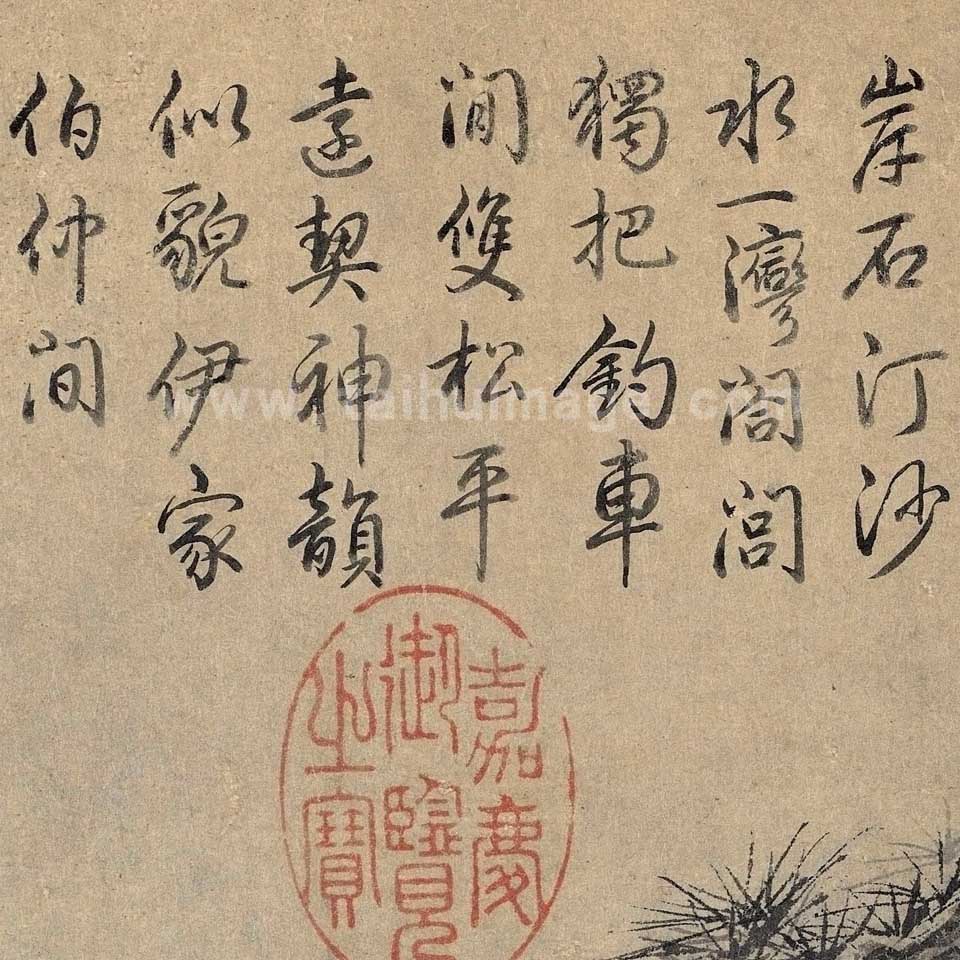 岸石汀沙
水一灣閤閭
獨把釣車
間雙松平
遠契神韻
似貌伊家
伯仲間
嘉慶
御覽
之寶